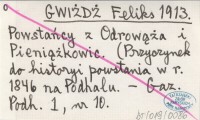 o GWIŻDŻ Feliks 1913.
Powstańcy z Odrowąża i
Pieniążkowic. (Przyczynek
do historyi powstania w r.
1846 na Podhalu. – Gaz.
Podh. 1, nr 10.
bt/019/0086